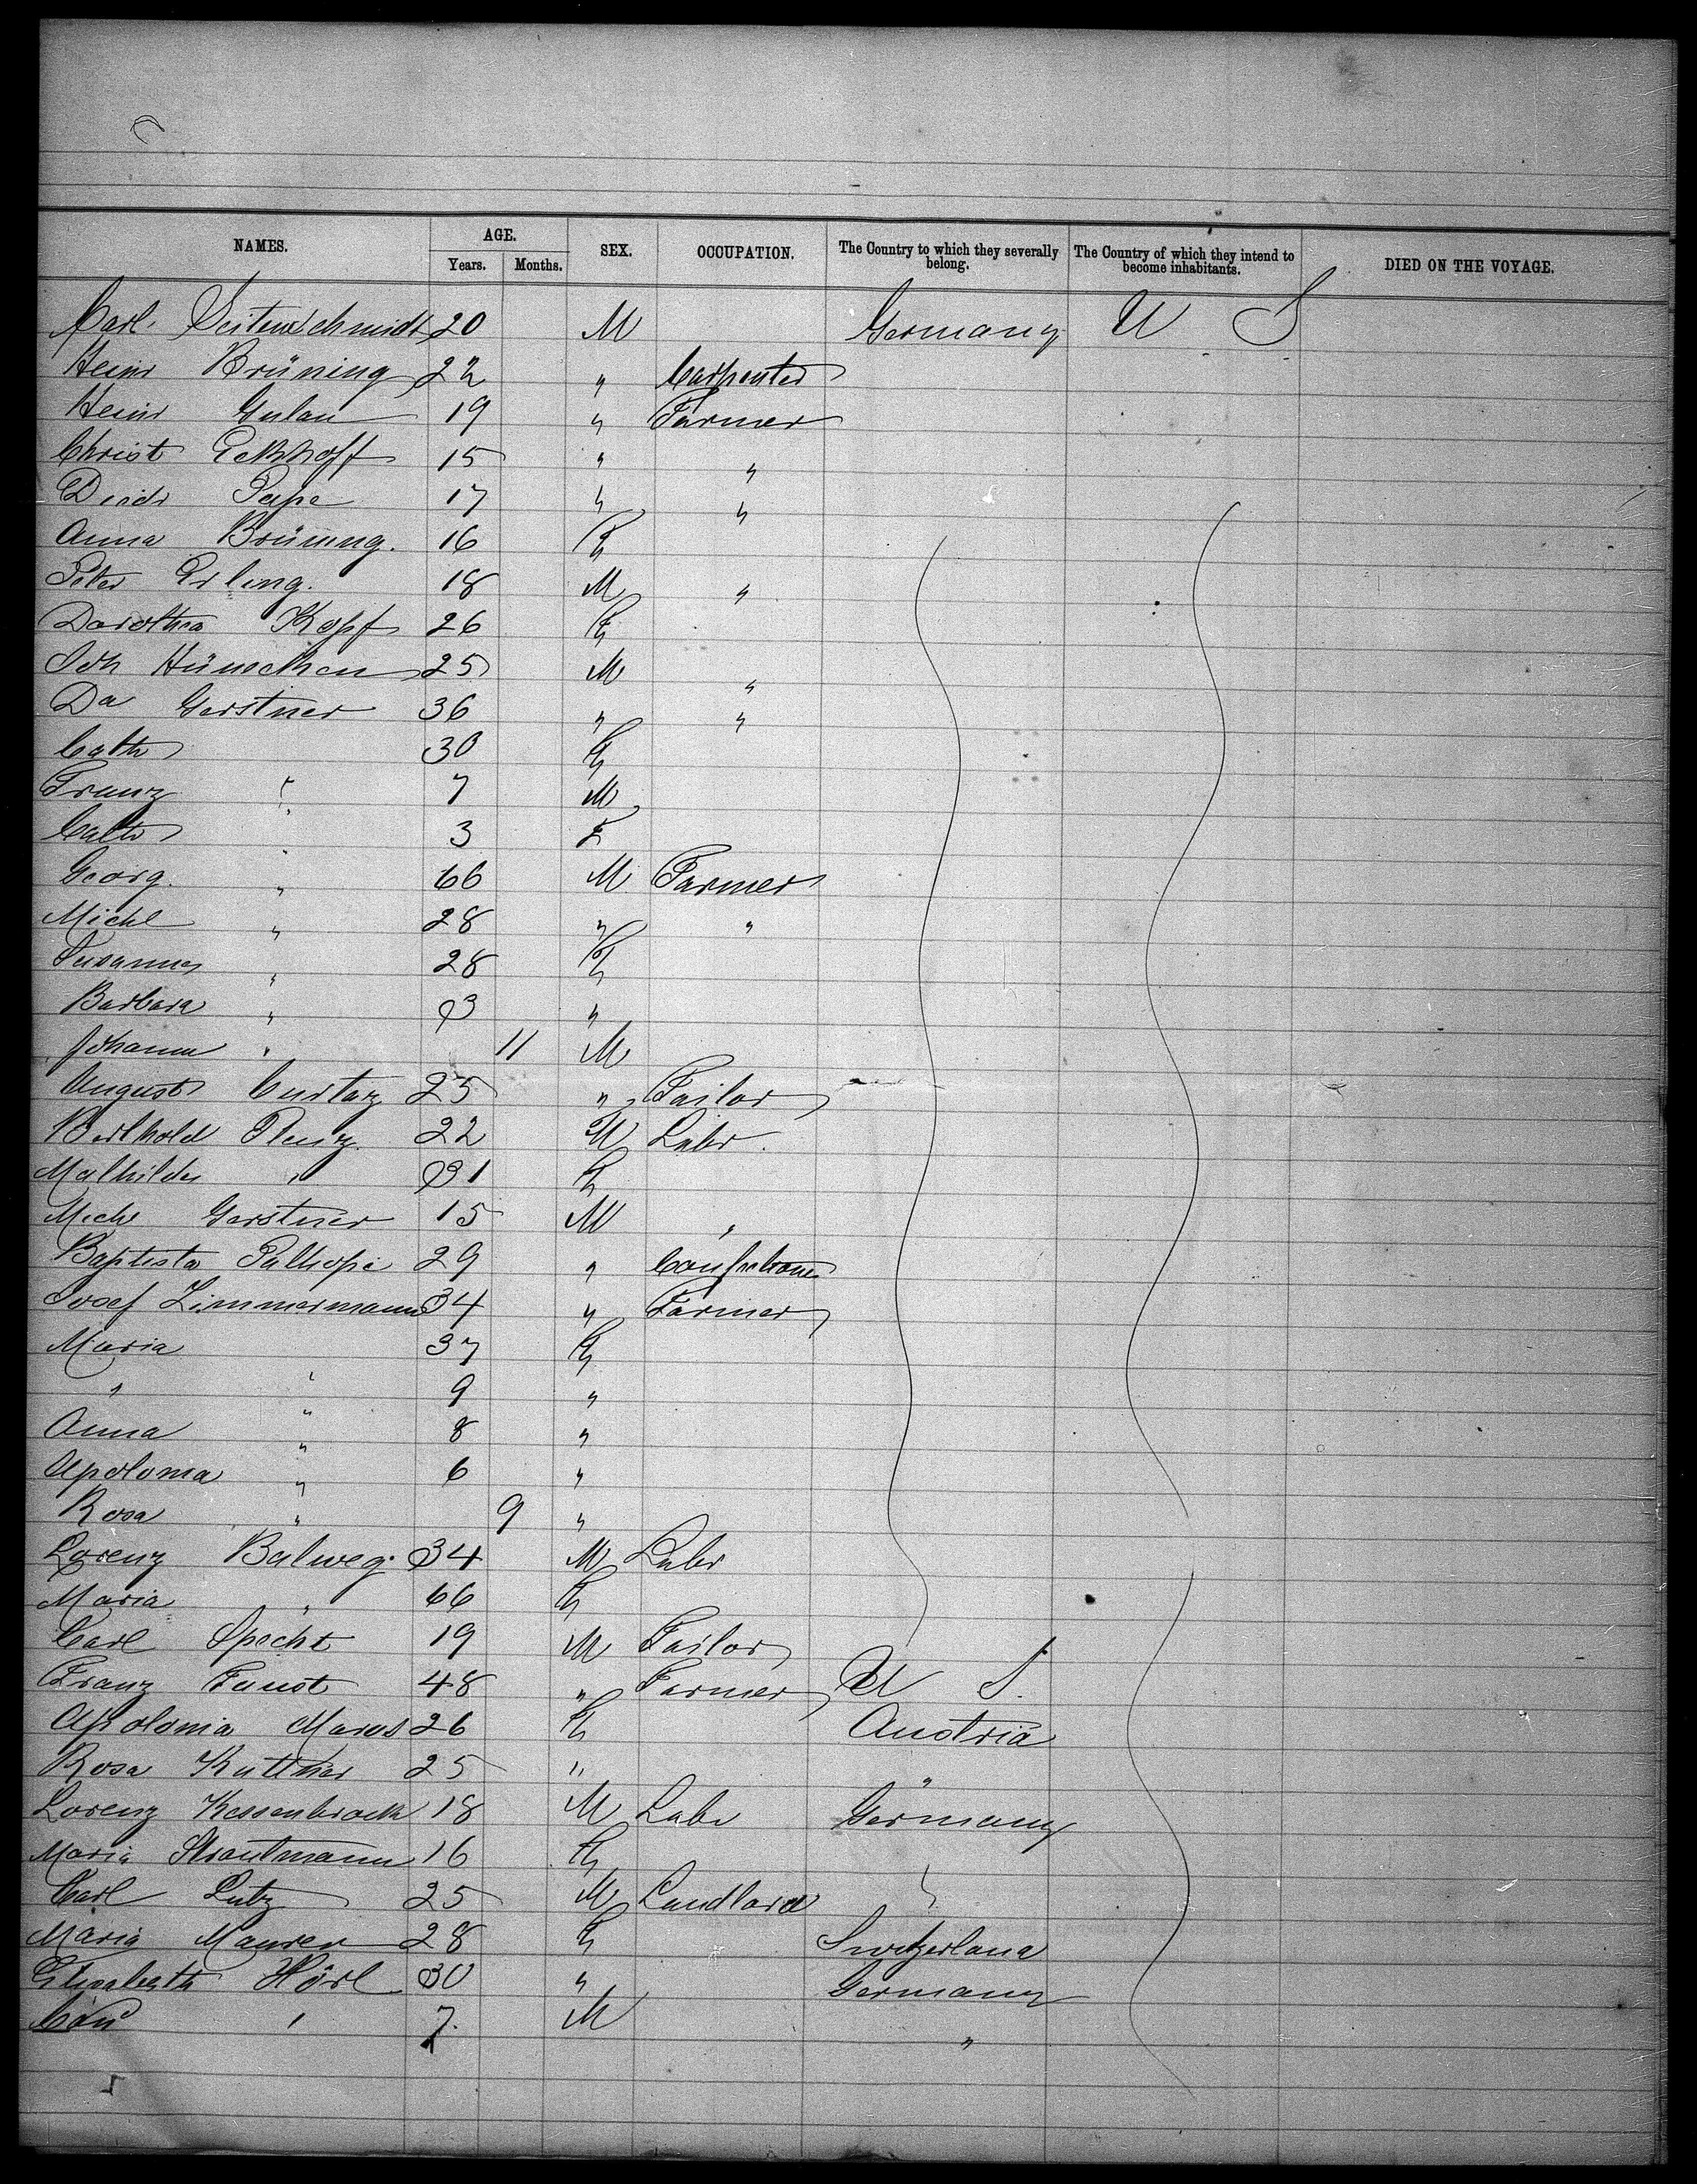 NAMES. AGE. SEX. OCCUPATION. The Country to which they severally belong. The Country of which they intend to become inhabitants. DIED ON THE VOYAGE.
Years. Months.
Carl Seitenschmidt 20 M Germany U S
Heinr Brüning 22 " Carpenter
Heinr Gulau 19 " Farmer
Christ Eckhoff 15 " "
Diedr Pape 17 " "
Anna Brüning. 16 F
Peter Erling. 18 M "
Dorothea Kopf 26 F
Joh Hünecken 25 M "
Da Gerstner 36 " "
Cath 30 F
Franz " 7 M
Cath " 3 F
Georg " 66 M Farmer
Michl " 28 " "
Susanna " 28 F
Barbara " 3 "
Johann " 11 M
August 25 " Tailor
Berthold 22 M Labr.
Mathilde " 31 F
Mich Gerstner 15 M "
Baptista 29 " Confectioner
Josef Zimmermann 34 " Farmer
Maria 37 F
" " 9 "
Anna " 8 "
Apolonia " 6 "
Rosa " 9 "
Lorenz Balweg. 34 M Labr
Maria " 66 F
Carl Specht 19 M Tailor
Franz Faust 48 " Farmer U S.
Apolonia 26 F Austria
Rosa Kuttner 25 " "
Lorenz Kessenbrock 18 M Labr Germany
Maria Strautmann 16 F
Carl Lutz 25 M Landlord "
Maria Maurer 28 F Switzerland
Elisabeth Hörl 30 " Germany
" 7. M "